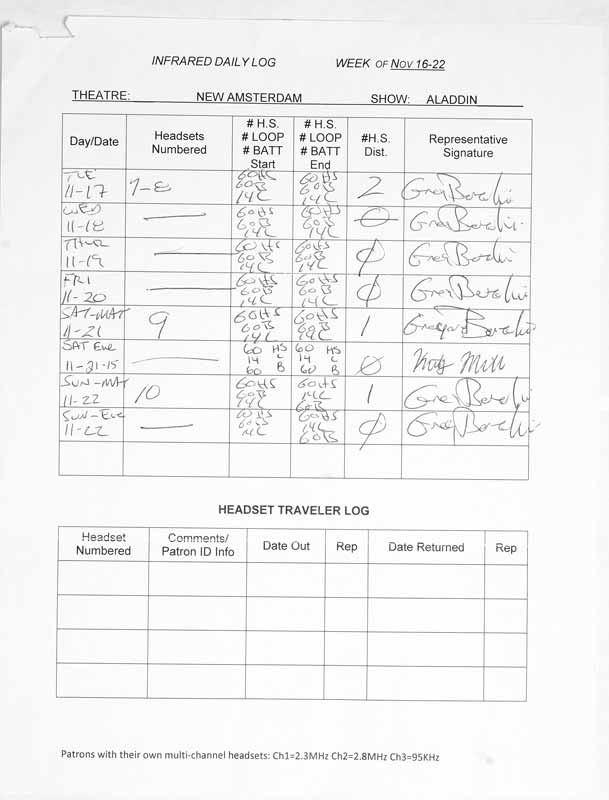 INFRARED DAILY LOG WEEK OF NOV 16-22
THEATRE: NEW AMSTERDAM SHOW: ALADDIN
Day/Date Headsets Numbered # H.S. # LOOP # BATT Start # H.S. # LOOP # BATT End #H.S. Dist. Representative Signature
TUE 11-17 7-8 60HS 60B 14L 60HS 60B 14L 2
WED 11-18 — 60HS 60B 14L 60HS 60B 14L 0
THUR 11-19 — 60HS 60B 14L 60HS 60B 14L 0
FRI 11-20 — 60HS 60B 14L 60HS 60B 14L 0
SAT-MAT 11-21 9 60HS 60B 14L 60HS 60B 14L 1
SAT Eve 11-21-15 — 60 HS 14 L 60 B 60 HS 14 L 60 B 0
SUN-MAT 11-22 10 60HS 60B 14L 60HS 14L 60B 1
SUN-Eve 11-22 — 60HS 60B 14L 60HS 14L 60B 0
HEADSET TRAVELER LOG
Headset Numbered Comments/ Patron ID Info Date Out Rep Date Returned Rep
Patrons with their own multi-channel headsets: Ch1=2.3MHz Ch2=2.8MHz Ch3=95KHz